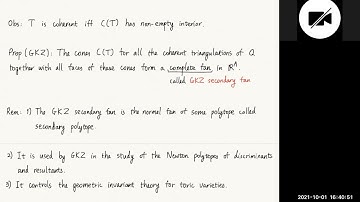 Obs: T is coherent iff C(T) has non-empty interior.
Prop (GKZ): The cones C(T) for all the coherent triangulations of Q
together with all faces of these cones form a complete fan in ℝᴬ.
called GKZ secondary fan
Rem: 1) The GKZ secondary fan is the normal fan of some polytope called
secondary polytope.
2) It is used by GKZ in the study of the Newton polytopes of discriminants
and resultants.
3) It controls the geometric invariant theory for toric varieties.
2021-10-01 16:40:51